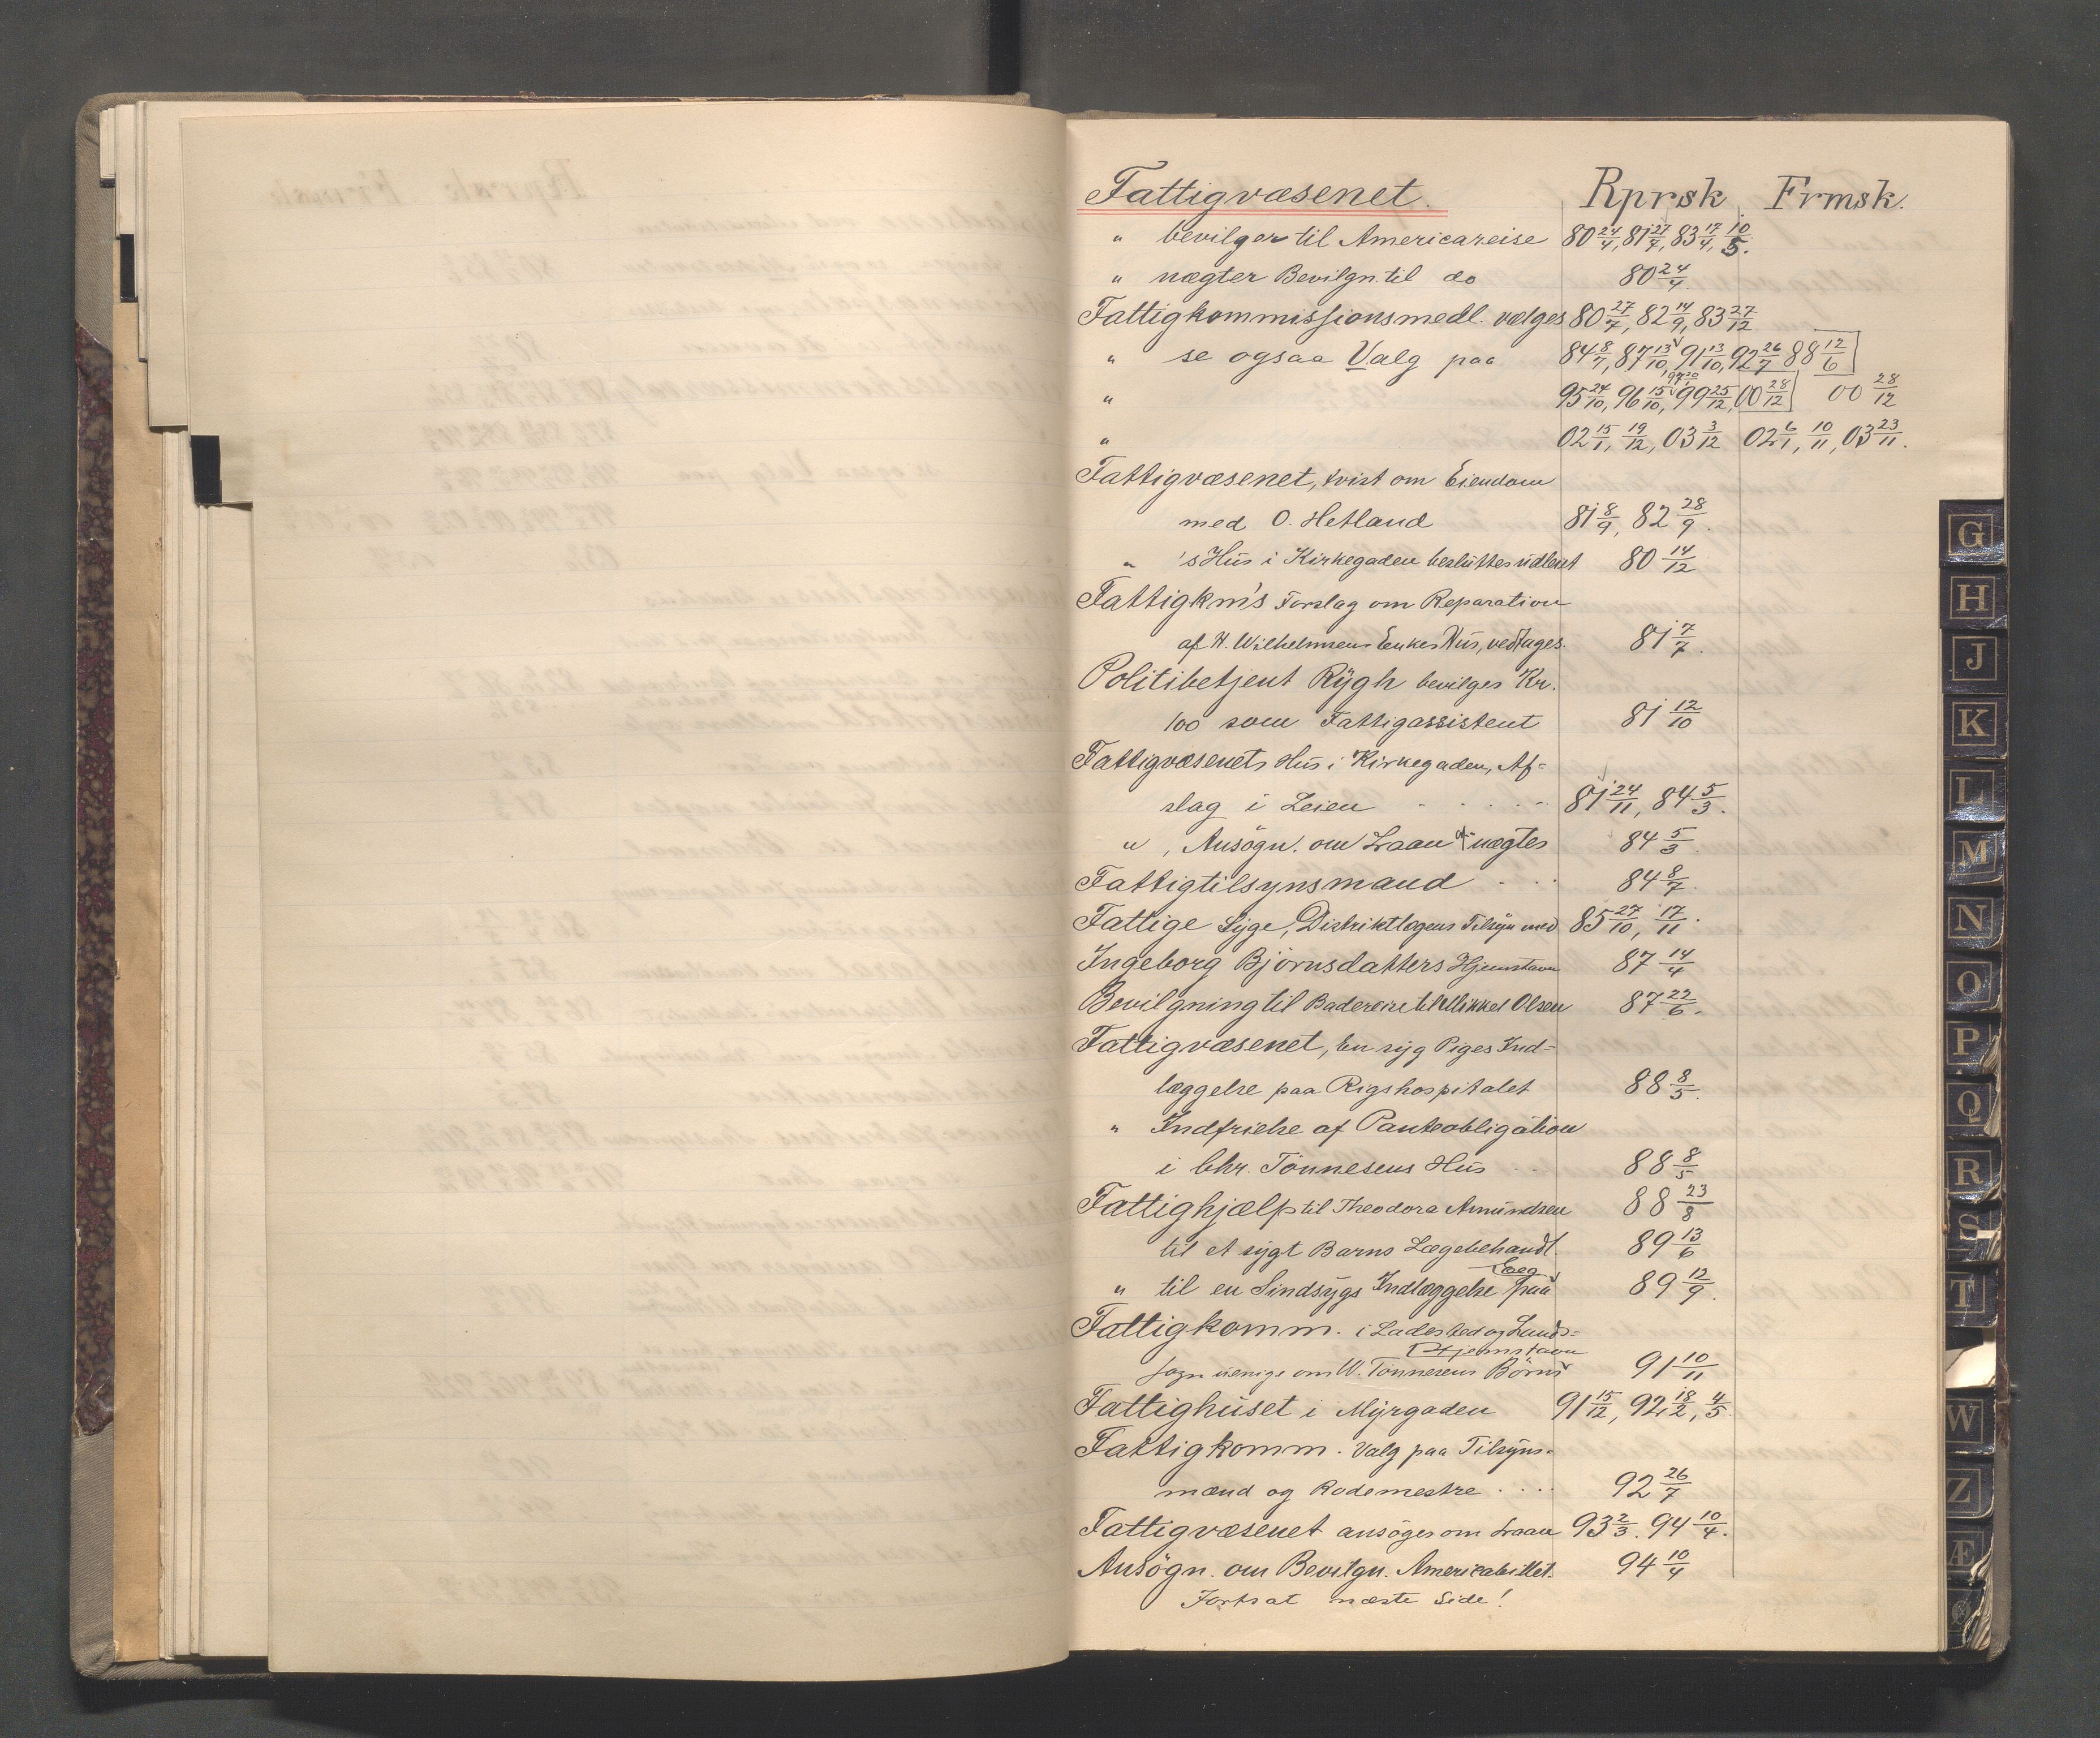 Fattigvæsenet. Rprsk. Frmsk.
" bevilger til Americareise 80 24/4, 81 27/7, 83 17/4, 10/5.
" nægter Bevilgn. til do 80 24/4.
Fattigkommissionsmedl. vælges 80 27/7, 82 14/9, 83 27/12
" se ogsaa Valg paa 84 8/7, 87 13/10, 91 13/10, 92 26/7 88 12/6
" 95 24/10, 96 15/10, 99 25/12, 00 28/12 00 28/12
" 02 15/1, 19/12, 03 3/12 02 6/1, 10/11, 03 23/11.
Fattigvæsenet, tvist om Eiendom
med O. Hetland 81 8/9, 82 28/9.
" 's Hus i Kirkegaden besluttes udleiet 80 14/12
Fattigkm's Forslag om Reparation
af H. Wilhelmsens Enkes Hus, vedtages. 81 7/7.
Politibetjent Rygh bevilges Kr.
100 som Fattigassistent 81 12/10
Fattigvæsenets Hus i Kirkegaden, Af=
slag i Leien 81 24/11, 84 5/3.
" , Ansögn. om Laan nægtes 84 5/3.
Fattigtilsynsmand 84 8/7.
Fattige Syge, Distriktlægens Tilsyn med 85 27/10, 17/11.
Ingeborg Bjornsdatters Hjemstavn 87 14/4
Bevilgning til Badereise til Mikkel Olsen 87 22/6.
Fattigvæsenet, En syg Piges Ind=
læggelse paa Rigshospitalet 88 8/5.
" Indfrielse af Panteobligation
i Chr. Tönnesens Hus 88 8/5
Fattighjælp til Theodora Amundsen 88 23/8
til et sygt Barns Lægebehandl. 89 13/6
" til en Sindsygs Indlæggelse paa Eeg 89 12/9.
Fattigkomm. i Ladested og Lands=
sogn uenige om W. Tönnesens Börns Hjemstavn 91 10/11
Fattighuset i Myrgaden 91 15/12, 92 18/2, 4/5.
Fattigkomm. Valg paa Tilsyns=
mænd og Rodemestre 92 26/7
Fattigvæsenet ansöger om Laan 93 2/3. 94 10/4.
Ansögn. om Bevilgn. Americabillet. 94 10/4
Fortsat næste Side!
G
H
J
K
L
M
N
O
P
Q
R
S
T
W
Z
Æ